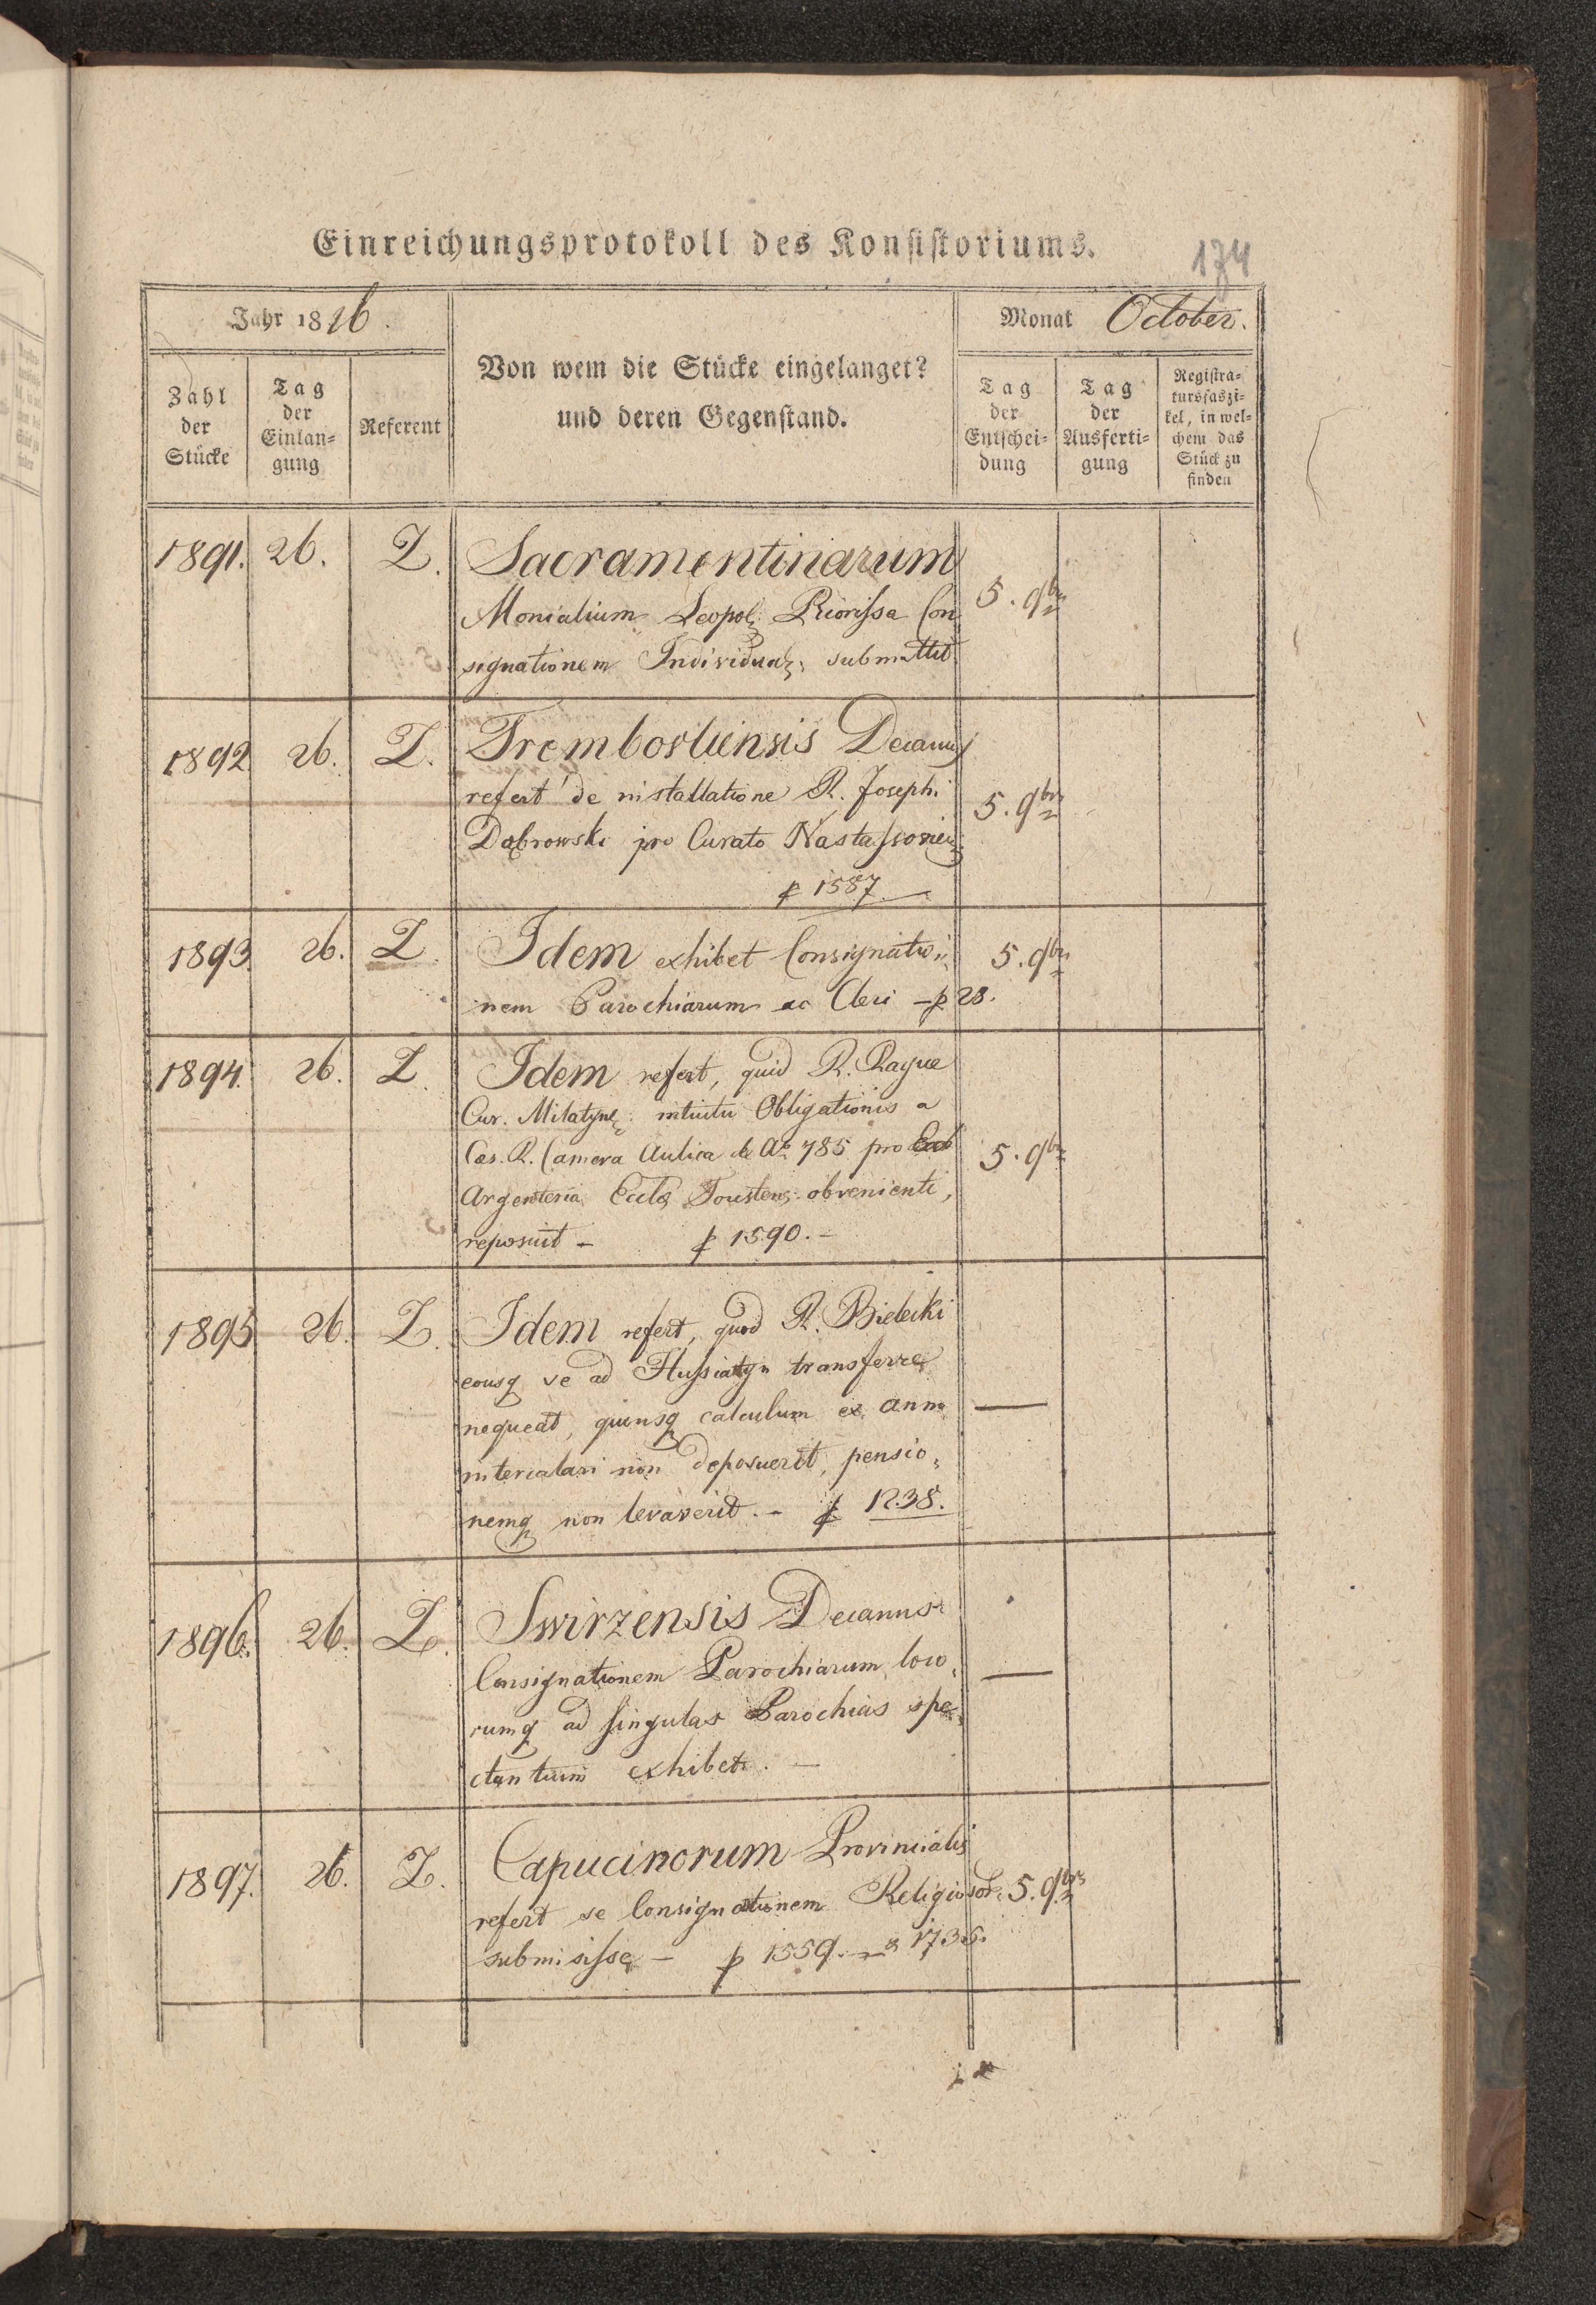 Einreichungsprotokoll des Konsistoriums.
174
Jahr 1816.
Von wem die Stücke eingelanget?
und deren Gegenstand.
Monat October.
Zahl
der
Stücke
Tag
der
Einlan-
gung
Referent
Tag
der
Entschei-
dung
Tag
der
Ausferti-
gung
Registra-
tursfaszi-
kel, in wel-
chem das
Stück zu
finden
1891. 26. Z. Sacramentinarum
Monialium Leopol: Priorissa Con 5. 9br
signationem Individual: submittit
1892 26. Z. Trembovliensis Decanus
refert de installatione R. Josephi
Dąbrowski pro Curato Nastassovien: 5. 9br
p 1587
1893. 26. Z. Idem exhibet Consignatio= 5. 9br
nem Parochiarum ac Cleri – p 28.
1894. 26. Z. Idem refert, quid R. Rayue
Cur. Milatyne: intuitu Obligationis a
Cæs. R. Camera Aulica de Ao 785 pro
Argenteria Eccla Tousten: obvenienti, 5. 9br
reposuit – p 1590. –
1895 26. Z. Idem refert, quod R. Bielecki
eousq ve ad Hussiatyn transferre
nequeat, quinsq calculum ex anno —
intercalari non deposuerit, pensio=
nemq non levaverit. – p 1238.
1896. 26. Z. Swirzensis Decanus
Consignationem Parochiarum loco= —
rumq ad singulas Parochias spe=
ctantium exhibet. —
1897. 26. Z. Capucinorum Provincialis
refert se Consignationem Religiosor: 5. 9br
submisisse – p 1559. & 1736.